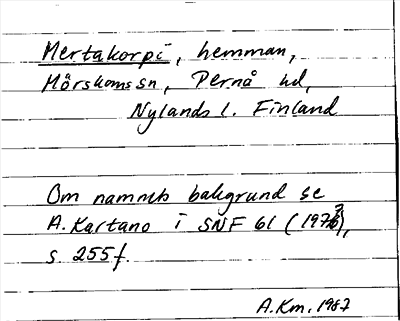 Mertakorpi, hemman,
Mörskoms sn, Pernå hd,
Nylands l. Finland
Om namnets bakgrund se
A. Kartano i SNF 61 (1973),
s. 255f.
A.Km. 1987